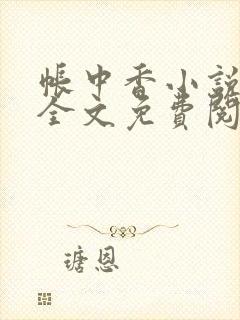 帐中香小說
全文免費閱
瑭恩